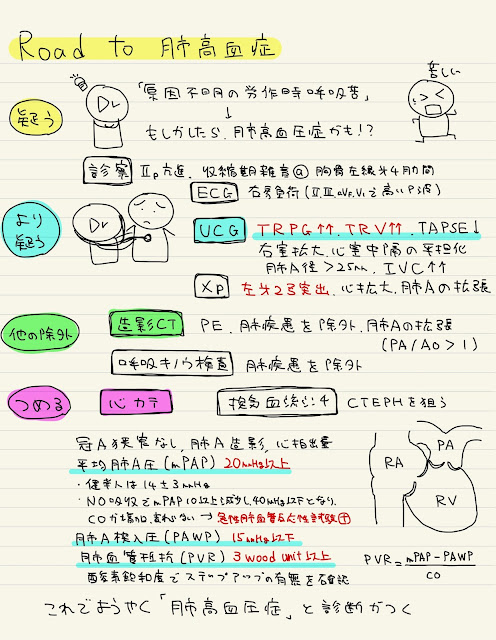 Road to 肺高血症
疑う
Dr
「原因不明の労作時呼吸苦」
↓
もしかしたら、肺高血圧症かも!?
苦しい
診察 Ⅱp亢進、収縮期雑音@胸骨左縁第4肋間
ECG 右房負荷(Ⅱ,Ⅲ,aVF,V1で高いP波)
より疑う
Dr
UCG TRPG↑↑, TRV↑↑, TAPSE↓
右室拡大、心室中隔の平坦化
肺A径>25mm, IVC↑↑
Xp 左第2弓突出、心拡大、肺Aの拡張
他の除外
造影CT PE、肺疾患を除外、肺Aの拡張
(PA/Ao>1)
呼吸キノウ検査 肺疾患を除外
つめる
心カテ
換気血流シンチ CTEPHを狙う
冠A狭窄なし、肺A造影、心拍出量
平均肺A圧(mPAP) 20mmHg以上
・健常人は14±3mmHg
・NO吸入でmPAP10以上減少し、40mmHg以下となり、
COが増加or変わらない→急性肺血管反応性試験⊕
肺A楔入圧(PAWP) 15mmHg以下
肺血管抵抗(PVR) 3 wood unit以上
酸素飽和度でステップアップの有無を確認
RA
PA
RV
PVR=mPAP-PAWP
CO
これでようやく「肺高血圧症」と診断がつく